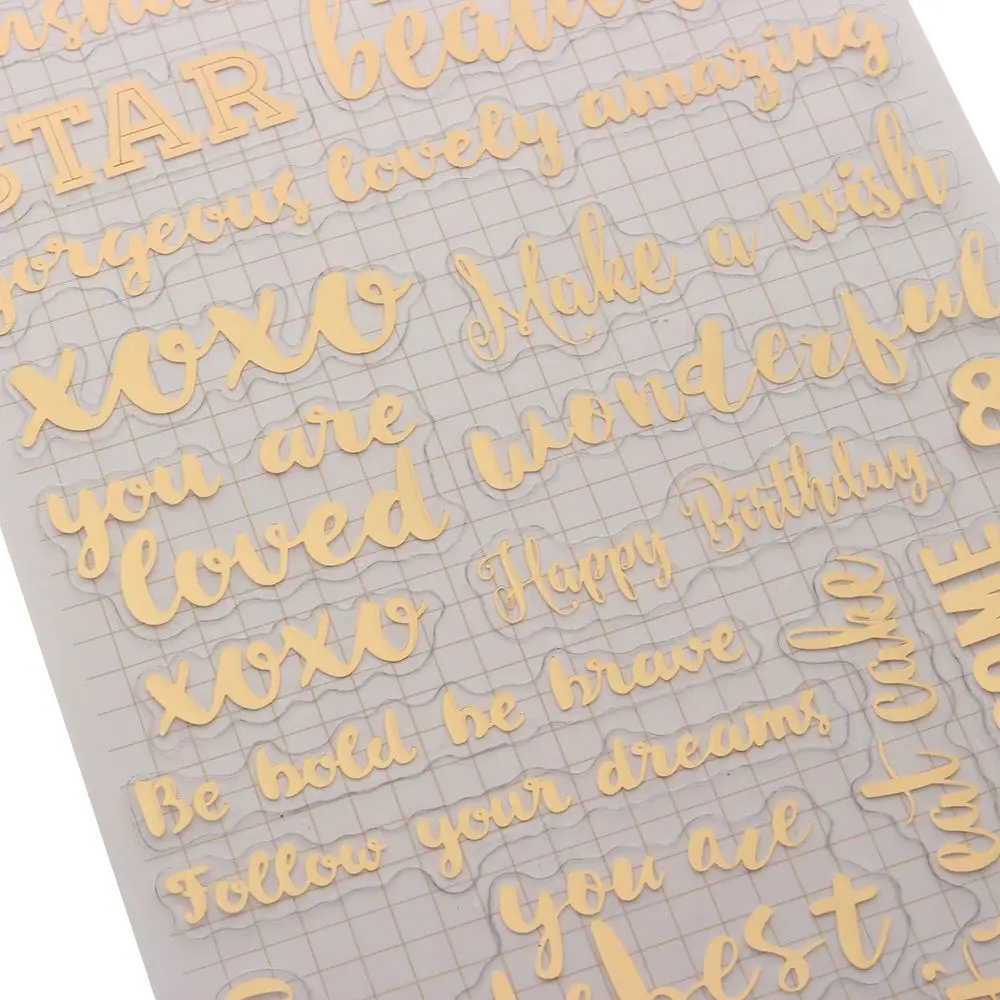 STAR
gorgeous lovely amazing
xoxo
Make a wish
you are
loved
wonderful
8
xoxo
Happy Birthday
Be bold be brave
Follow your dreams
eat cake
you are
best